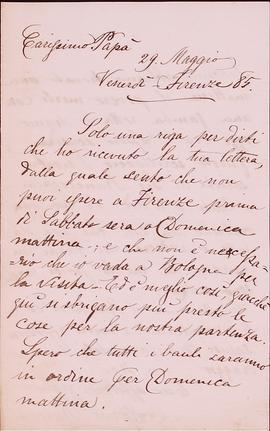 Carissimo Papà
29 Maggio
Venerdì Firenze 85.
Solo una riga per dirti
che ho ricevuto la tua lettera,
dalla quale sento che non
puoi essere a Firenze prima
di Sabbato sera o Domenica
mattina; e che non è necessa-
rio che io vada a Bologna per
la visita. Ed è meglio così, giacchè
quì si sbrigano più presto le
cose per la nostra partenza.
Spero che tutti i bauli saranno
in ordine per Domenica
mattina.